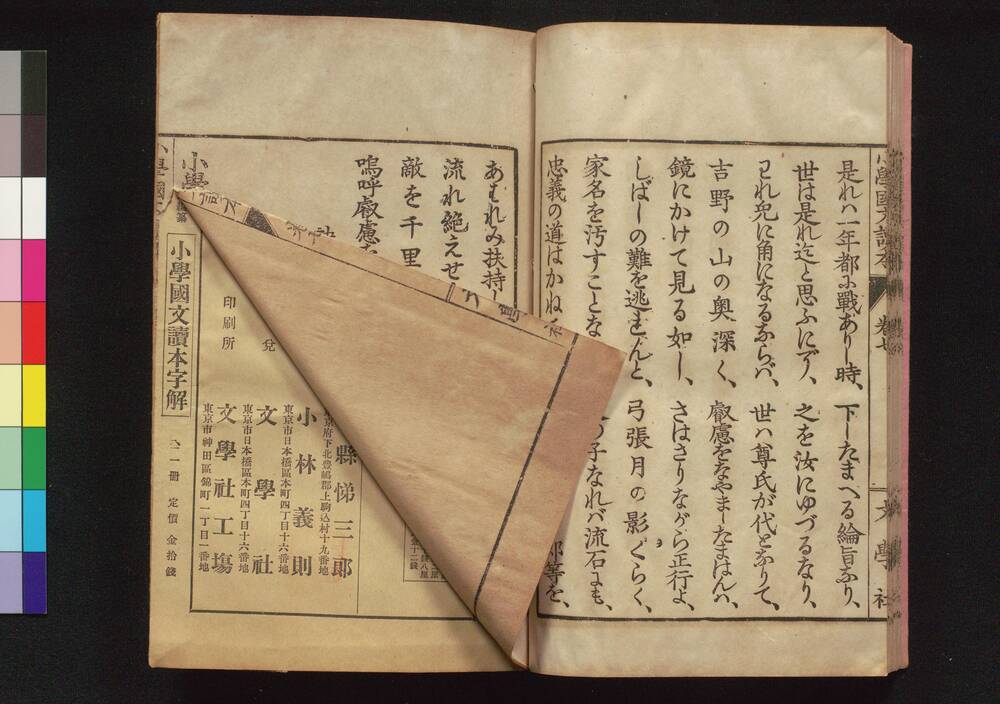 小學國文讀本 卷七 文學社
是れハ一年都に戰ありし時、下したまへる綸旨なり、
世は是れ迄と思ふにぞ、之を汝にゆづるなり、
われ死に角になるならバ、世ハ尊氏が代となりて、
吉野の山の奥深く、叡慮をなやましたまはんハ、
鏡にかけて見る如し、さはさりながら正行よ、
しばしの難を逃れんと、弓張月の影くらく、
家名を汚すことな
の子なれバ流石にも、
忠義の道はかね
郎等を、
あはれみ扶持し
流れ絶えせ
敵を千里
嗚呼叡慮を
小學
縣悌三郎
京府下北豊嶋郡上駒込村十九番地
小林義則
東京市日本橋區本町四丁目十六番地
兌
文學社
東京市日本橋區本町四丁目十六番地
印刷所
文學社工塲
東京市神田區錦町一丁目一番地
小學國文讀本字解
全一册 定價金拾錢
小學國